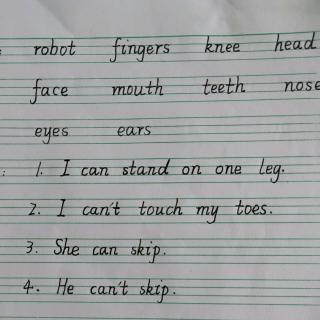 robot fingers knee head
face mouth teeth nose
eyes ears
1. I can stand on one leg.
2. I can't touch my toes.
3. She can skip.
4. He can't skip.